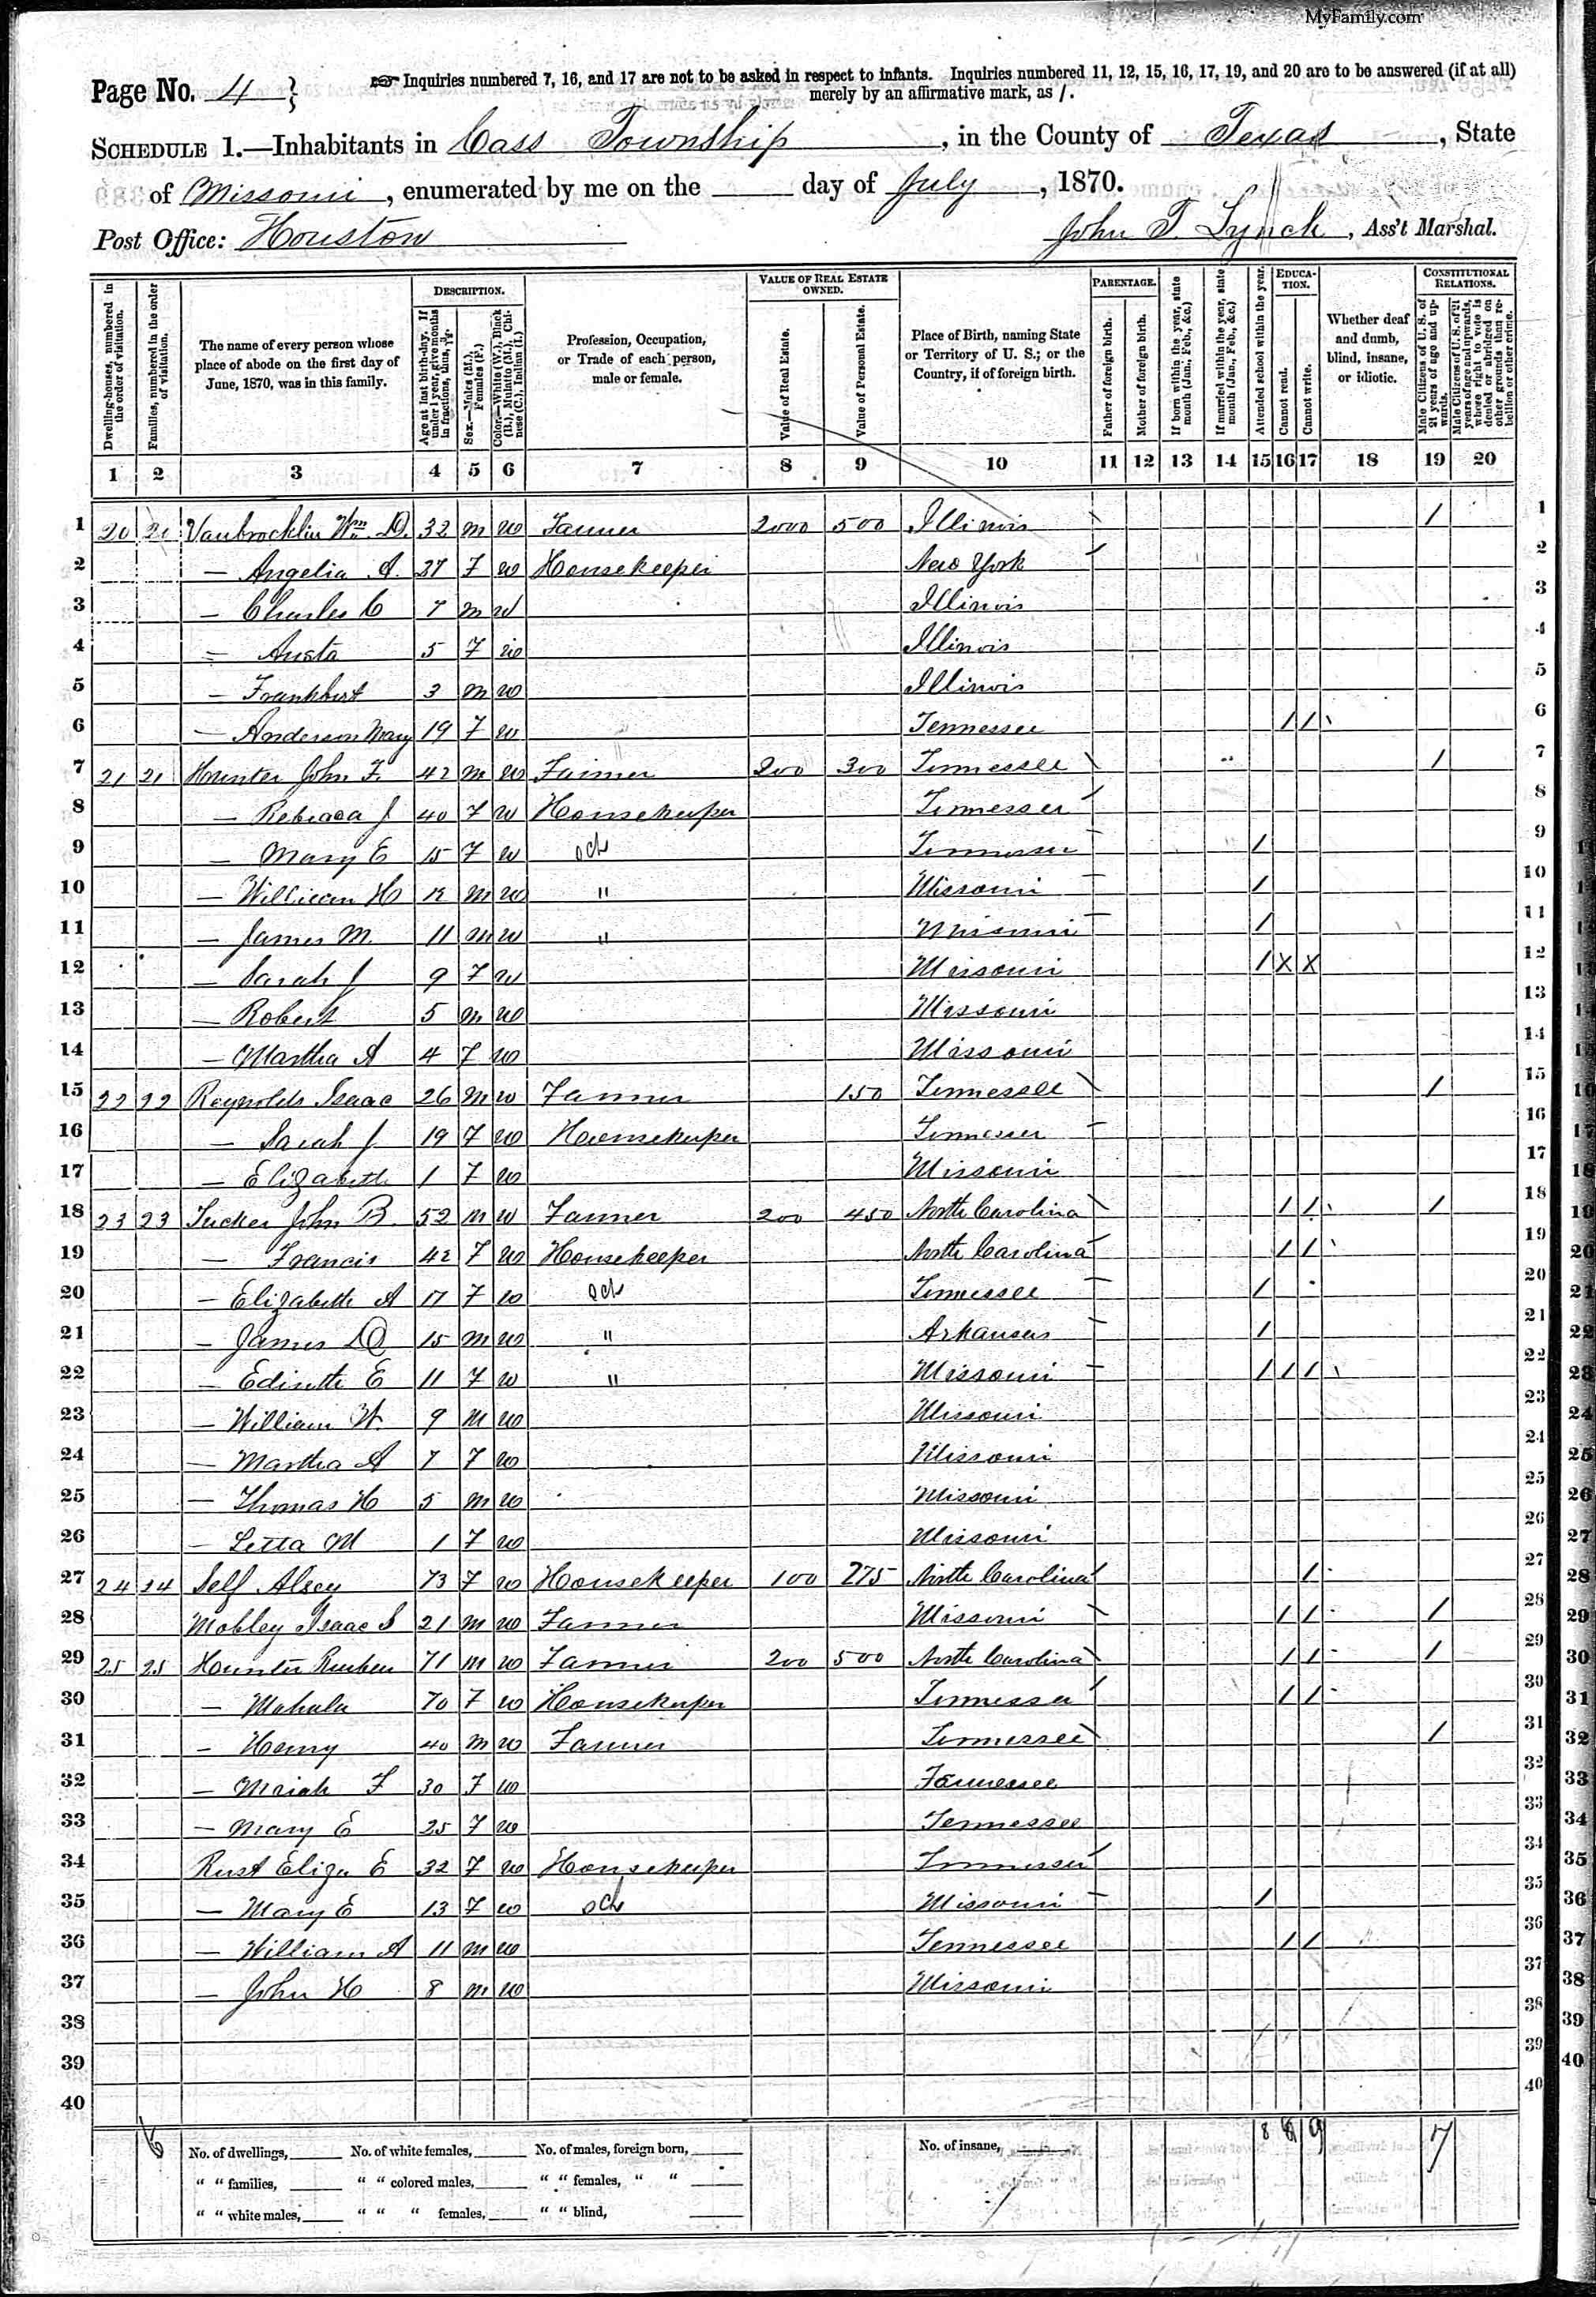 MyFamily.com
Page No. 4 }
Inquiries numbered 7, 16, and 17 are not to be asked in respect to infants. Inquiries numbered 11, 12, 15, 16, 17, 19, and 20 are to be answered (if at all)
merely by an affirmative mark, as /.
SCHEDULE 1.—Inhabitants in Cass Township, in the County of Texas, State
of Missouri, enumerated by me on the ___ day of July, 1870.
Post Office: Houston
John T. Lynch, Ass't Marshal.
Dwelling-houses, numbered in the order of visitation.
Families, numbered in the order of visitation.
The name of every person whose place of abode on the first day of June, 1870, was in this family.
DESCRIPTION.
Age at last birth-day. If under 1 year, give months in fractions, thus, 3/12.
Sex.—Males (M.), Females (F.)
Color.—White (W.), Black (B.), Mulatto (M.), Chinese (C.), Indian (I.)
Profession, Occupation, or Trade of each person, male or female.
VALUE OF REAL ESTATE OWNED.
Value of Real Estate.
Value of Personal Estate.
Place of Birth, naming State or Territory of U. S.; or the Country, if of foreign birth.
PARENTAGE.
Father of foreign birth.
Mother of foreign birth.
If born within the year, state month (Jan., Feb., &c.)
If married within the year, state month (Jan., Feb., &c.)
Attended school within the year.
EDUCATION.
Cannot read.
Cannot write.
Whether deaf and dumb, blind, insane, or idiotic.
CONSTITUTIONAL RELATIONS.
Male Citizens of U. S. of 21 years of age and upwards.
Male Citizens of U. S. of 21 years of age and upwards, where right to vote is denied or abridged on other grounds than rebellion or other crime.
1 2 3 4 5 6 7 8 9 10 11 12 13 14 15 16 17 18 19 20
1 20 20 Vanbrocklin Wm. D. 32 m w Farmer 2000 500 Illinois / 1
2 — Angelia A. 37 F w Housekeeper New York 2
3 — Charles C 7 m w Illinois 3
4 — Austa 5 F w Illinois 4
5 — Frankbert 3 m w Illinois 5
6 — Anderson Mary 19 F w Tennessee / / 6
7 21 21 Hunter John F. 42 m w Farmer 200 300 Tennessee / 7
8 — Rebecca J 40 F w Housekeeper Tennessee 8
9 — Mary E 15 F w Tennessee / 9
10 — William H 12 m w " Missouri / 10
11 — James M. 11 m w " Missouri / 11
12 — Sarah J 9 F w Missouri / X X 12
13 — Robert 5 m w Missouri 13
14 — Martha A 4 F w Missouri 14
15 22 22 Reynolds Isaac 26 m w Farmer 150 Tennessee / 15
16 — Sarah J 19 F w Housekeeper Tennessee 16
17 — Elizabeth 1 F w Missouri 17
18 23 23 Tucker John B. 52 m w Farmer 200 450 North Carolina / / / 18
19 — Francis 42 F w Housekeeper North Carolina / / 19
20 — Elizabeth A 17 F w Tennessee / 20
21 — James D 15 m w " Arkansas / 21
22 — E 11 F w " Missouri / / / 22
23 — William W. 9 m w Missouri 23
24 — Martha A 7 F w Missouri 24
25 — Thomas H 5 m w Missouri 25
26 — Letta M 1 F w Missouri 26
27 24 24 Self Alsey 73 F w Housekeeper 100 275 North Carolina / 27
28 Mobley Isaac S 21 m w Farmer Missouri / / / 28
29 25 25 Hunter Reuben 71 m w Farmer 200 500 North Carolina / / / 29
30 — Mahala 70 F w Housekeeper Tennessee / / 30
31 — Henry 40 m w Farmer Tennessee / 31
32 — F 30 F w Tennessee 32
33 — Mary E 25 F w Tennessee 33
34 Rust Eliza E 32 F w Housekeeper Tennessee 34
35 — Mary E 13 F w Missouri / 35
36 — William A 11 m w Tennessee / / 36
37 — John H 8 m w Missouri 37
38 38
39 39
40 40
6
No. of dwellings, ___ No. of white females, ___ No. of males, foreign born, ___ No. of insane, ___
" " families, ___ " " colored males, ___ " " females, " " ___
" " white males, ___ " " " females, ___ " " blind, ___
8 9 7